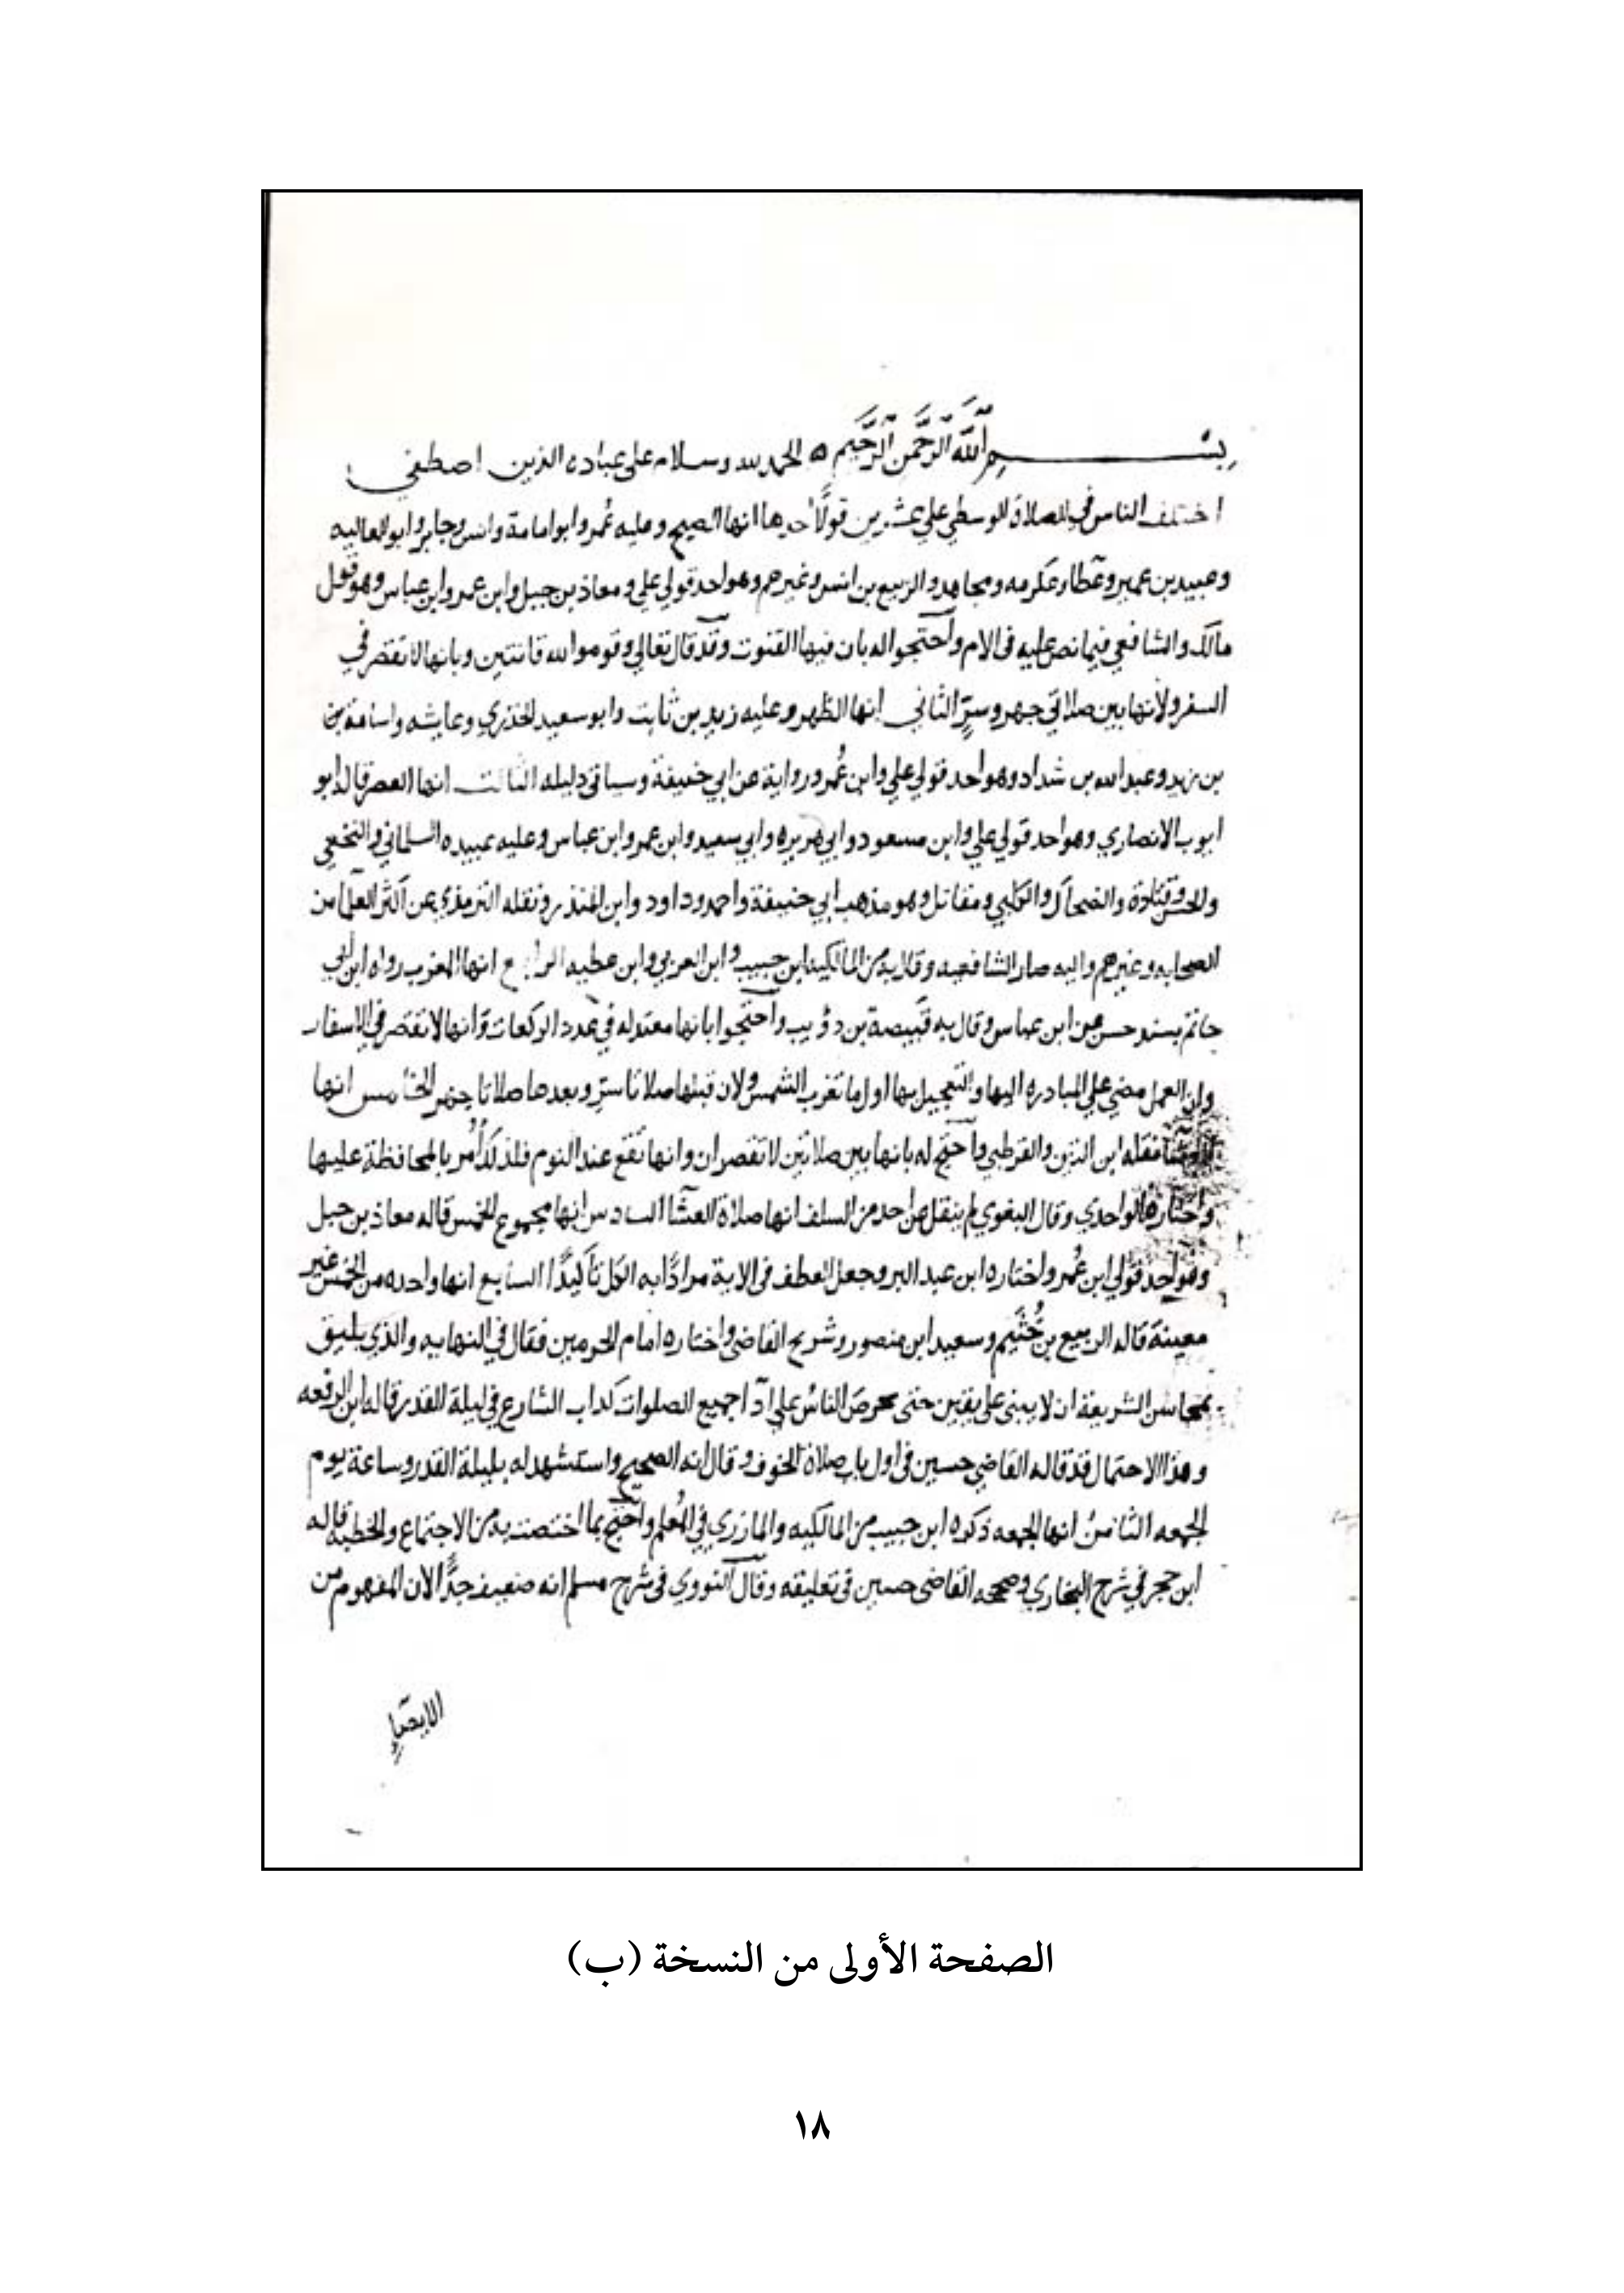 بسم الله الرحمن الرحيم ه الحمد لله وسلام على عباده الذين اصطفى
اختلف الناس في الصلاة الوسطى على عشرين قولًا احدها انها الصبح وعليه عُمر وابو امامة وانس وجابر وابو العاليه
وعبيد بن عمير وعطا وعكرمه ومجاهد والربيع بن انس وغيرهم وهو احد قولي علي ومعاذ بن جبل وابن عمر وابن عباس وهو قول
مالك والشافعي فيما نص عليه في الام واحتجوا له بان فيها القنوت وقد قال تعالي وقوموا لله قانتين وبانها لا تقصر في
السفر ولانها بين صلاتي جهر وسرٍّ الثاني انها الظهر وعليه زيد بن ثابت وابو سعيد الخذري وعايشه واسامة بن
بن زيد وعبد الله بن شداد وهو احد قولي علي وابن عُمر ورواية عن ابي حنيفة وسياتي دليله الثالث انها العصر قاله ابو
ايوب الانصاري وهو احد قولي علي وابن مسعود وابي هريره وابي سعيد وابن عمر وابن عباس وعليه عبيده السلماني والنخعي
والحسن وقتادة والضحاك والكلبي ومقاتل وهو مذهب ابي حنيفة واحمد وداود وابن المنذر ونقله الترمذي عن اكثر العلما من
الصحابه وغيرهم واليه صار الشافعيه وقال به من المالكيه ابن حبيب وابن العربي وابن عطيه الرابع انها المغرب رواه ابن ابي
حاتم بسند حسن عن ابن عباس وقال به قبيصة بن ذؤيب واحتجوا بانها معتدله في عدد الركعات وانها لا تقصر في الاسفار
وان العمل مضي علي المبادره اليها والتعجيل بها اول ما تغرب الشمس ولان قبلها صلاتا سرٍّ وبعدها صلاتا جهر الخامس انها
العشا نقله ابن التين والقرطبي واحتج له بانها بين صلاتين لا تقصران وانها تقع عند النوم فلذلك أُمر بالمحافظة عليها
واختاره الواحدي وقال البغوي لم ينقل عن احد من السلف انها صلاة العشا السادس انها مجموع الخمس قاله معاذ بن جبل
وهو احد قولي ابن عُمر واختاره ابن عبد البر وجعل العطف في الاية مرادًا به الكل تأكيدًا السابع انها واحده من الخمس غير
معينة قاله الربيع بن خُثَيم وسعيد ابن منصور وشريح القاضي واختاره امام الحرمين فقال في النهايه والذي يليق
بمحاسن الشريعة ان لا يبنى على يقين حتى يحرص الناسُ علي ادآ جميع الصلوات كداب الشارع في ليلة القدر قاله ابن الرفعه
وهذا الاحتمال قد قاله القاضي حسين في اول باب صلاة الخوف وقال انه الصحيح واستشهد له بليلة القدر وساعة يوم
الجمعه الثامن انها الجمعه ذكره ابن حبيب من المالكيه والمازري في المُعلم واحتج بما اختصت به من الاجتماع والخطبه قاله
ابن حجر في شرح البخاري وصححه القاضي حسين في تعليقه وقال النووي في شرح مسلم انه ضعيف جدًّا لان المفهوم من
الصفحة الأولى من النسخة (ب)
١٨